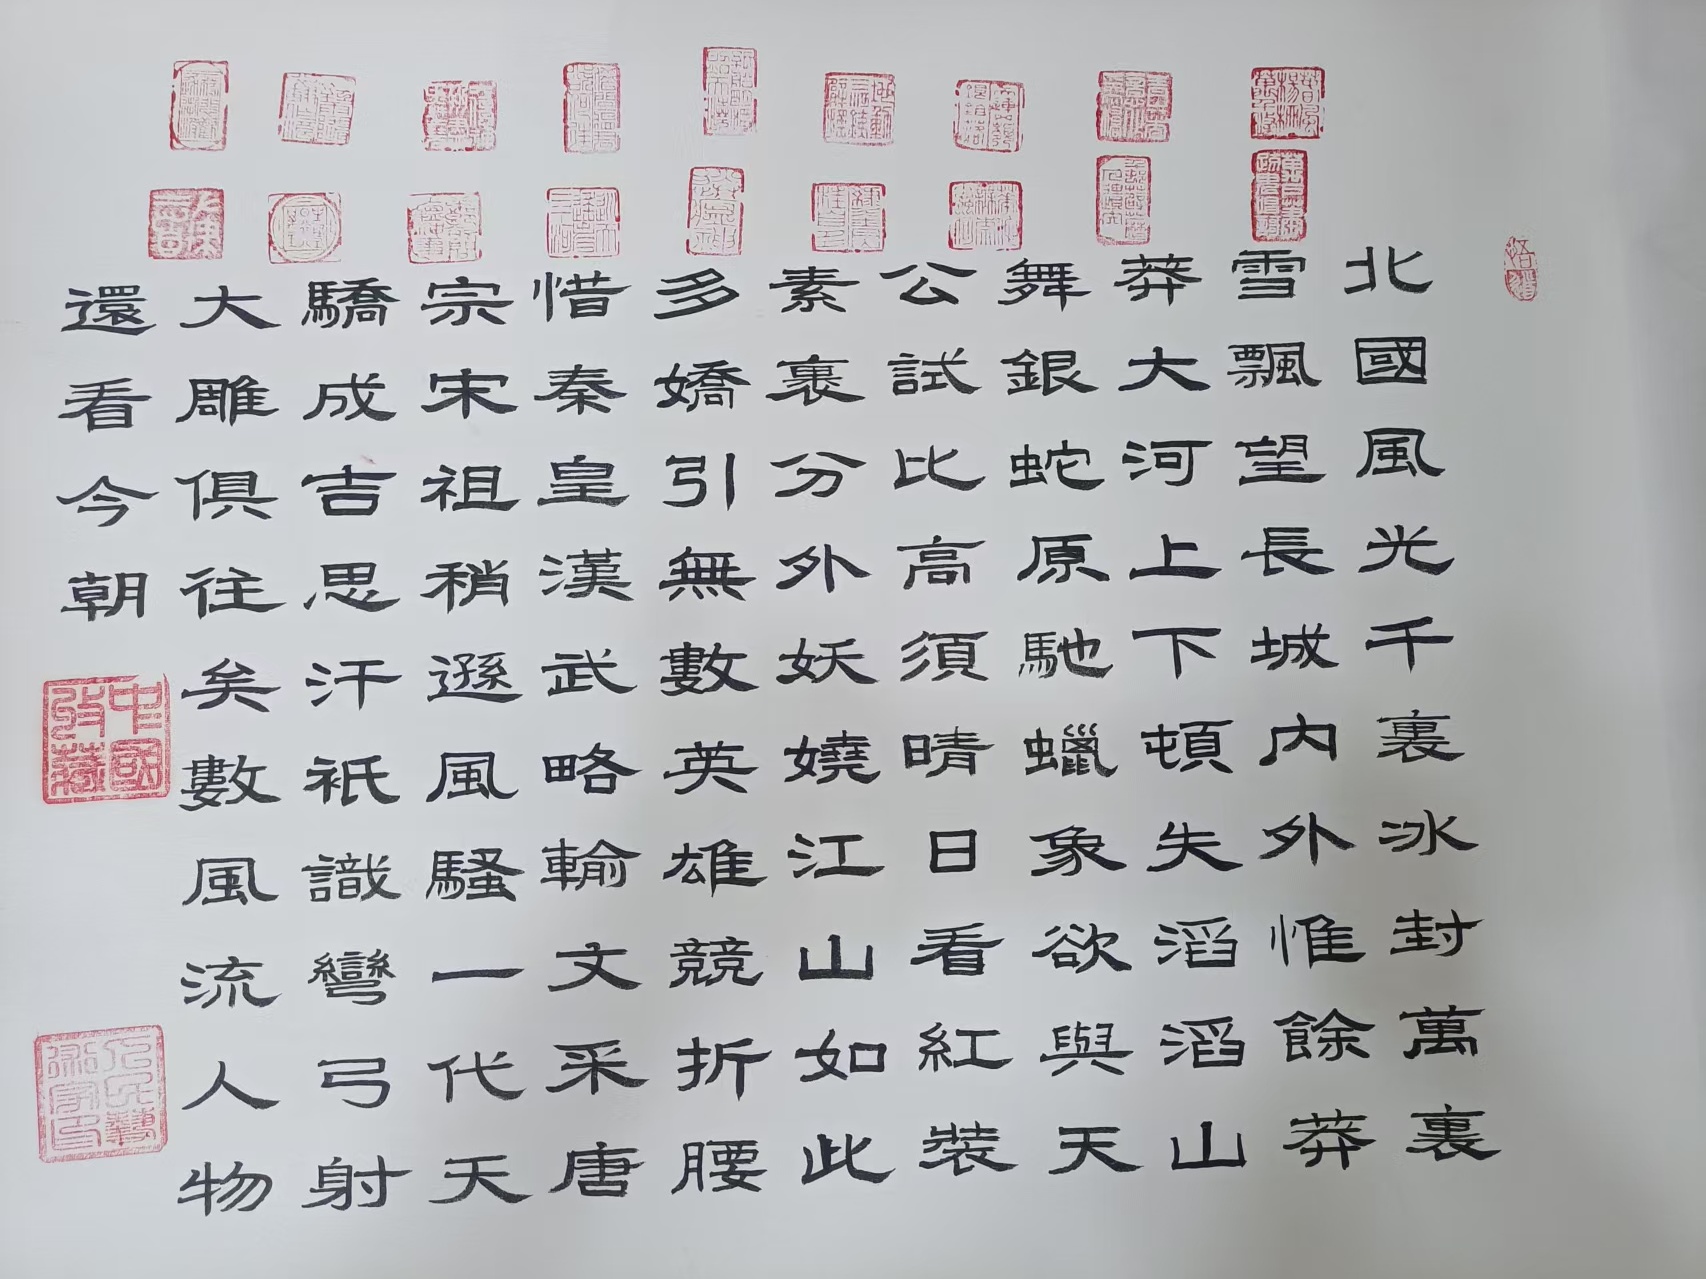 悟道
北國風光千裏冰封萬裏
雪飄望長城內外惟餘莽
莽大河上下頓失滔滔山
舞銀蛇原馳蠟象欲與天
公試比高須晴日看紅裝
素裹分外妖嬈江山如此
多嬌引無數英雄競折腰
惜秦皇漢武略輸文采唐
宗宋祖稍遜風騷一代天
驕成吉思汗祇識彎弓射
大雕俱往矣數風流人物
還看今朝
中國收藏
人民藝術家印